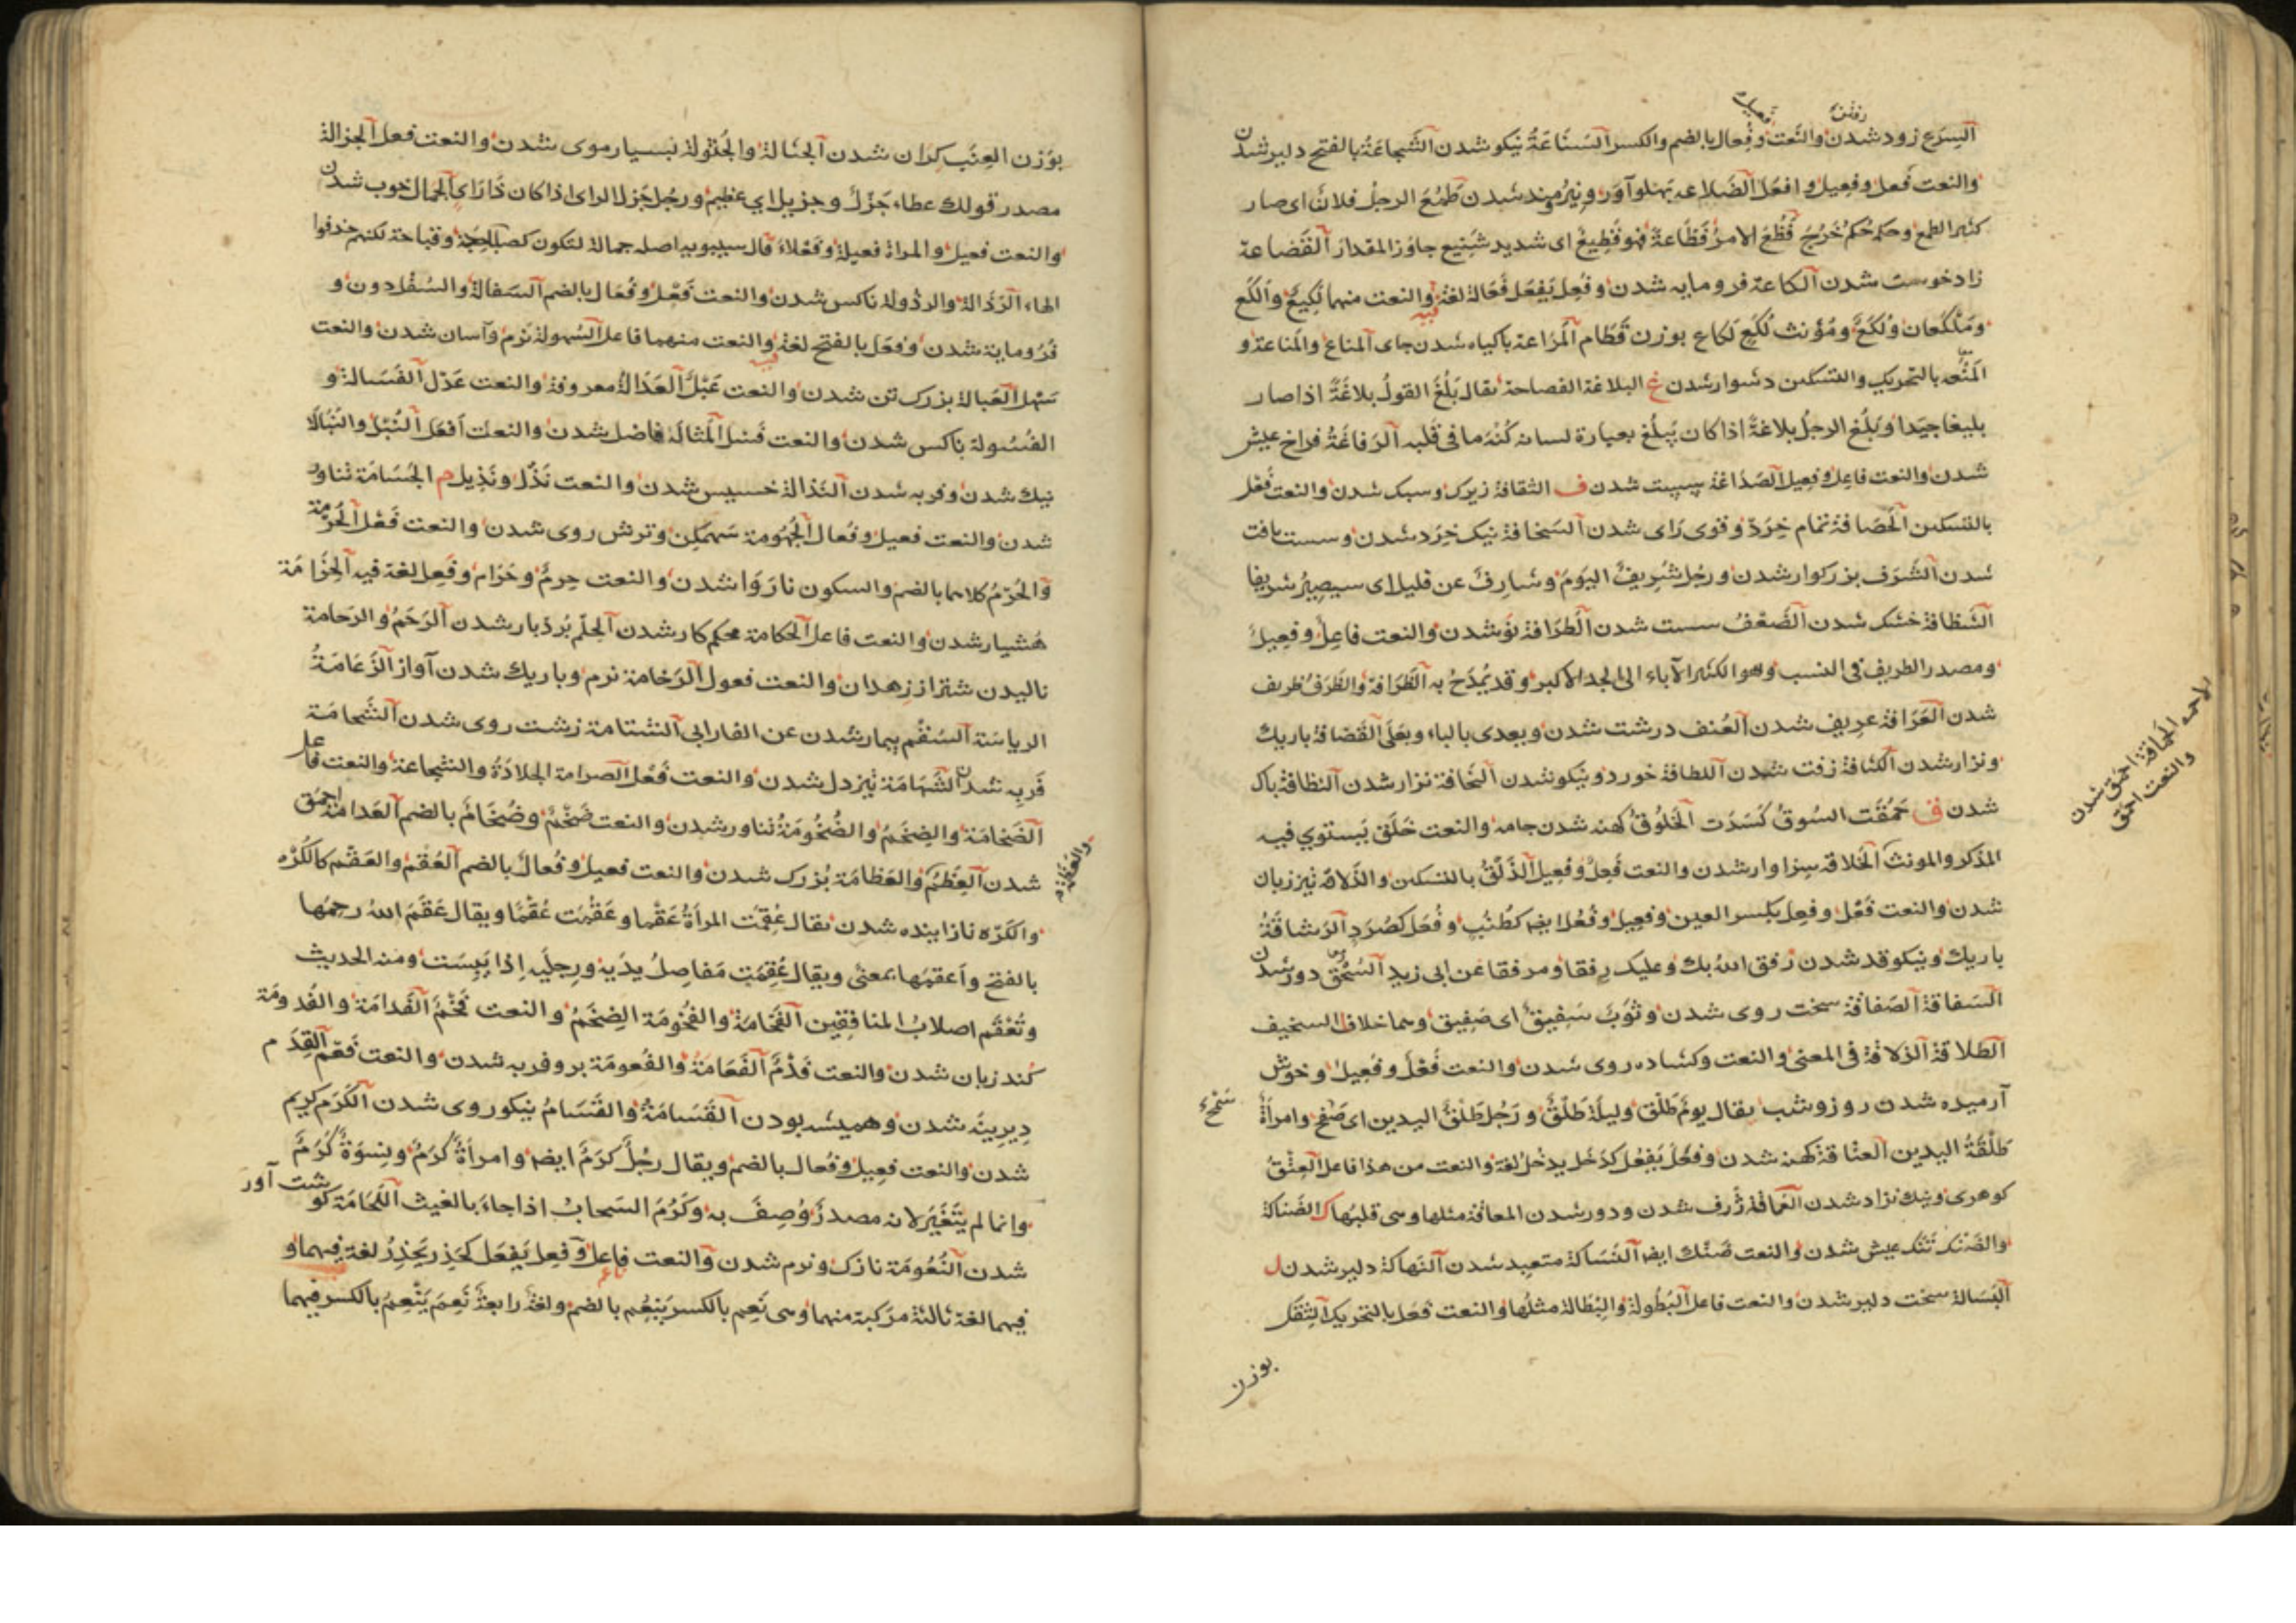 السرع زود شدن والنعت وفعال بالضم والكسر السناعة نيكو شدن الشجاعة بالفتح دلير شدن
والنعت فعل وفعيل وافعل الضلاعه پهلو آور ونيرومند شدن طمع الرجل فلان اى صار
كثير الطمع وحكمه حكم خرج فظع الامر فظاعة فهو فظيع اى شديد شنيع جاوز المقدار القضاعة
زاد خوست شدن اللكاعة فرومايه شدن وفعل يفعل فعالة لغة فيه والنعت منهما لكيع والكع
وملكعان ولكع ومؤنث لكع لكاع بوزن قطام المراعة باكياه شدن جاى المناع والمناعة و
المنعه بالتحريك والتسكين دشوار شدن غ البلاغة الفصاحة يقال بلغ القول بلاغة اذا صار
بليغا جيدا وبلغ الرجل بلاغة اذا كان يبلغ بعبارة لسانه كنه ما فى قلبه الرفاغة فراخ عيش
شدن والنعت فاعل وفعيل الصداغة سست شدن ف الثقافة زيرك وسبك شدن والنعت فعل
بالتسكين الحصافة تمام خرد وقوى راى شدن السخافة نيك خرد شدن وسست بافت
شدن الشرف بزركوار شدن ورجل شريف اليوم وشارف عن قليل اى سيصير شريفا
الشظافة خشك شدن الضعف سست شدن الطرافة نو شدن والنعت فاعل وفعيل
ومصدر الطريف فى النسب وهو الكثير الآباء الى الجد الاكبر وقد يمدح به الظرافة والظرف ظريف
شدن العرافة عريف شدن العنف درشت شدن ويعدى بالباء وبعلى القضافة باريك
ونزار شدن الكثافة زفت شدن اللطافة خورد ونيكو شدن النحافة نزار شدن النظافة پاك
شدن ق حمقت السوق كسدت الخلوق كهنه شدن جامه والنعت خلق يستوي فيه
المذكر والمونث الخلاقة سزاوار شدن والنعت فعل وفعيل الذلق بالتسكين والذلاقة تيز زبان
شدن والنعت فعل وفعل بكسر العين وفعيل وفعل ايضا كطنب وفعل كصرد الرشاقة
باريك ونيكو قد شدن رفق الله بك وعليك رفقا ومرفقا عن ابى زيد السحق دور شدن
السفاقة الصفاقة سخت روى شدن وثوب سفيق اى صفيق وهما خلاف السخيف
الطلاقة الذلاقة فى المعنى والنعت وكشاده روى شدن والنعت فعل وفعيل وخوش
آرميده شدن روز وشب يقال يوم طلق وليلة طلق ورجل طلق اليدين اى سمح وامرأة
طلقة اليدين العتاقة كهنه شدن وفعل يفعل كدخل يدخل لغة والنعت من هذا فاعل العتق
كوهرى ونيك نژاد شدن العماقة ژرف شدن ودور شدن المعاقة مثلها وهى قلبها ك الضناكة
والضنك تنك عيش شدن والنعت ضنك ايضا النساكة متعبد شدن النهاكة دلير شدن ل
البسالة سخت دلير شدن والنعت فاعل البطولة والبطالة مثلها والنعت فعل بالتحريك الثقل
بوزن
الحماقة احمق شدن
والنعت احمق
بوزن العنب كران شدن الجثالة والجثولة بسيار موى شدن والنعت فعل الجزالة
مصدر قولك عطاء جزل وجزيل اي عظيم ورجل جزل الراى اذا كان ذا راي الجمال خوب شدن
والنعت فعيل والمراة فعيلة وفعلاء قال سيبويه اصله جمالة لتكون كصباحة وقباحة لكنهم حذفوا
الهاء الرذالة والرذولة ناكس شدن والنعت فعل وفعال بالضم السفالة والسفل دون و
فرومايه شدن وفعل بالفتح لغة فيه والنعت منهما فاعل السهولة نرم وآسان شدن والنعت
سهل العبالة بزرك تن شدن والنعت عبل العدالة معروفة والنعت عدل الفسالة و
الفسولة ناكس شدن والنعت فسل المثالة فاضل شدن والنعت افعل النبل والنبالة
نيك شدن وفربه شدن النذالة خسيس شدن والنعت نذل ونذيل م الجسامة تناور
شدن والنعت فعيل وفعال الجهومة سهمكن وترش روى شدن والنعت فعل الحرمة
والحرم كلاهما بالضم والسكون ناروا شدن والنعت حرم وحرام وفعل لغة فيه الحزامة
هشيار شدن والنعت فاعل الحكامة محكم كار شدن الحلم بردبار شدن الرحم والرحامة
ناليدن شتر از زهدان والنعت فعول الرخامة نرم وباريك شدن آواز الزعامة
الرياسة السقم بيمار شدن عن الفارابي الشتامة زشت روى شدن الشحامة
فربه شدن الشهامة تيز دل شدن والنعت فعل الصرامة الجلادة والشجاعة والنعت فاعل
الضخامة والضخم والضخومة تناور شدن والنعت ضخم وضخام بالضم العدامة احمق
شدن العظم والعظامة بزرك شدن والنعت فعيل وفعال بالضم العقم والعقم كالكره
والكره نازاينده شدن يقال عقمت المرأة عقما وعقمت عقما ويقال عقم الله رحمها
بالفتح واعقمها بمعنى ويقال عقمت مفاصل يديه ورجليه اذا يبست ومنه الحديث
وتعقم اصلاب المنافقين الفخامة والفخومة الضخم والنعت فخم الفدامة والفدومة
كند زبان شدن والنعت فدم الفعامة والفعومة پر وفربه شدن والنعت فعم القدم
ديرينه شدن وهميشه بودن القسامة والقسام نيكو روى شدن الكرم كريم
شدن والنعت فعيل وفعال بالضم ويقال رجل كرم ايضا وامرأة كرم ونسوة كرم
وانما لم يتغير لانه مصدر وصف به وكرم السحاب اذا جاء بالغيث اللحامة كوشت آور
شدن النعومة نازك ونرم شدن والنعت فاعل وفعل يفعل كحذر يحذر لغة فيهما و
فيهما لغة ثالثة مركبة منهما وهى نعم بالكسر ينعم بالضم ولغة رابعة نعم ينعم بالكسر فيهما